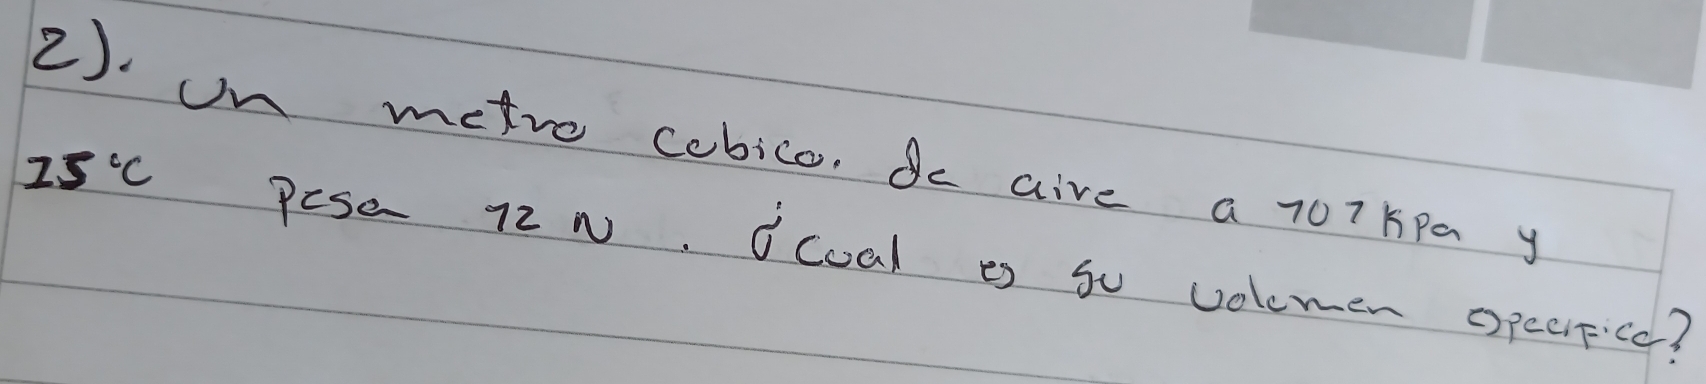 2). Un metro cubico. de aire a 101 KPa y
15°C pesa 12 N. ¿Cual es su volumen especifico?